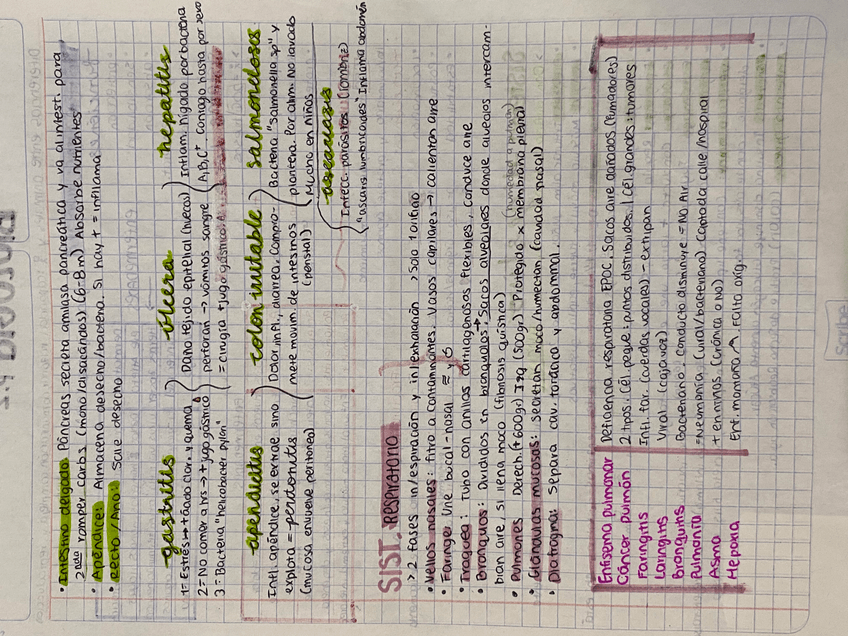 • Intestino delgado: Páncreas secreta amilasa pancreática y va al intest. para
2ndo romper carbs (mono/disacáridos) (6-8m) Absorbe nutrientes
• Apéndice: Almacena desecho/bacteria. Si hay t = inflama
• Recto/Ano: Sale desecho
gastritis
1= Estrés → + ácido clor. y quema
2= No comer a hrs → + jugo gástrico
3= Bacteria "helicobacter pylori"
úlcera
Daño tejido epitelial (hueco)
perforan → vómitos sangre
= cirugía + jugo gástrico
hepatitis
Inflam. hígado por bacteria
A,B,C+ contagio hasta por sexo
apendicitis
Infl. apéndice, se extrae sino
explota = peritonitis
(mucosa envuelve peritoneo)
colon irritable
Dolor, infl., diarrea. Compro-
mete movim. de intestinos
(penstal)
salmonelosis
Bacteria "salmonella sp" y
Por alim. No lavado
Mucho en niños
ascariasis
Infecc. parásitos (lombriz)
"ascaris lumbricoides" Inflama abdomen
SIST. Respiratorio
> 2 fases in/espiración y in/exhalación
> Solo 1 orificio
• Vellos nasales: Filtro a contaminantes. Vasos capilares → calientan aire
• Faringe: Une bucal-nasal
• Traquea: Tubo con anillos cartilaginosos flexibles, conduce aire
• Bronquios: Divididos en bronquiolos → Sacos alveolares donde alveolos intercam-
bian aire, si llena moco (fibrosis quística)
(humedad a pulmón)
• Pulmones: Derech. (+600gr) Izq (500gr) Protegido x membrana pleural
• Glándulas mucosas: Secretan moco/humectan (cavidad nasal)
• Diafragma: Separa cav. torácica y abdominal.
Enfisema pulmonar Deficiencia respiratoria EPOC. Sacos aire dañados (fumadores)
Cáncer pulmón 2 tipos. Cél. peque: puntos distribuidos. | cél grandes: tumores
Faringitis Infl. far. (cuerdas vocales) - extirpan
Laringitis Viral (caja voz)
Bronquitis Bacteriano. Conducto disminuye = NO Air
Pulmonía =Neumonía (viral/bacteriano) Captada calle/hospital
Asma + en niños (Crónica o NO)
Enf. mamaria